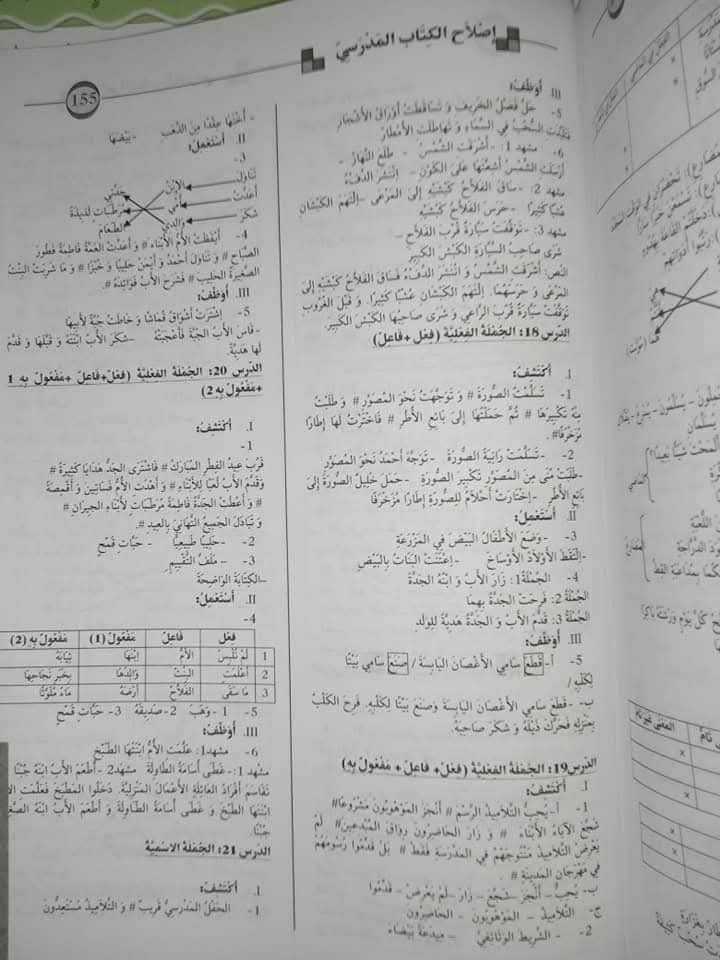 إصْلَاح الكِتَاب المَدْرَسِيّ
155
III. أُوَظِّفُ:
5- حَلَّ فَصْلُ الخَرِيفِ وَ تَسَاقَطَتْ أَوْرَاقُ الأَشْجَارِ
السُّحُبُ فِي السَّمَاءِ وَ تَهَاطَلَتِ الأَمْطَارُ
6- مشهد 1: أَشْرَقَتِ الشَّمْسُ - طَلَعَ النَّهَارُ -
أَرْسَلَتِ الشَّمْسُ أَشِعَّتَهَا عَلَى الكَوْنِ - اِنْتَشَرَ الدِّفْءُ
مشهد 2: - سَاقَ الفَلَّاحُ كَبْشَيْهِ إِلَى المَرْعَى - اِلْتَهَمَ الكَبْشَانِ
عُشْبًا كَثِيرًا - حَرَسَ الفَلَّاحُ كَبْشَيْهِ
مشهد 3: - تَوَقَّفَتْ سَيَّارَةٌ قُرْبَ الفَلَّاحِ -
شَرَى صَاحِبُ السَّيَّارَةِ الكَبْشَ الكَبِيرَ
النَّصّ: أَشْرَقَتِ الشَّمْسُ وَ انْتَشَرَ الدِّفْءُ فَسَاقَ الفَلَّاحُ كَبْشَيْهِ إِلَى
المَرْعَى وَ حَرَسَهُمَا. اِلْتَهَمَ الكَبْشَانِ عُشْبًا كَثِيرًا. وَ قَبْلَ الغُرُوبِ
تَوَقَّفَتْ سَيَّارَةٌ قُرْبَ الرَّاعِي وَ شَرَى صَاحِبُهَا الكَبْشَ الكَبِيرَ.
الدّرس 18: الجُمْلَة الفِعْلِيَّة (فِعْل +فَاعِل)
I. أَكْتَشِفُ:
1- تَسَلَّمْتُ الصُّورَةَ # وَ تَوَجَّهْتُ نَحْوَ المُصَوِّرِ # وَ طَلَبْتُ
مِنْهُ تَكْبِيرَهَا # ثُمَّ حَمَلْتُهَا إِلَى بَائِعِ الأُطُرِ # فَاخْتَرْتُ لَهَا إِطَارًا
مُزَخْرَفًا#.
2- - تَسَلَّمَتْ رَانِيَةُ الصُّورَةَ - تَوَجَّهَ أَحْمَدُ نَحْوَ المُصَوِّرِ
-طَلَبَتْ مُنَى مِنَ المُصَوِّرِ تَكْبِيرَ الصُّورَةِ - حَمَلَ خَلِيلُ الصُّورَةَ إِلَى
بَائِعِ الأُطُرِ -اِخْتَارَتْ أَحْلَامُ لِلصُّورَةِ إِطَارًا مُزَخْرَفًا
II. أَسْتَعْمِلُ:
3- -وَضَعَ الأَطْفَالُ البَيْضَ فِي المَزْرَعَةِ
-اِلْتَقَطَ الأَوْلَادُ الأَوْسَاخَ - اِعْتَنَتِ البَنَاتُ بِالبَيْضِ
4- الجُمْلَة1: زَارَ الأَبُ وَ ابْنُهُ الجَدَّةَ
الجُمْلَة 2: فَرِحَتِ الجَدَّةُ بِهِمَا
الجُمْلَة 3: قَدَّمَ الأَبُ وَ الجَدَّةُ هَدِيَّةً لِلْوَلَدِ
III. أُوَظِّفُ:
5- أ- قَطَعَ سَامِي الأَغْصَانَ اليَابِسَةَ / صَنَعَ سَامِي بَيْتًا
لِكَلْبِهِ /
ب- قَطَعَ سَامِي الأَغْصَانَ اليَابِسَةَ وَصَنَعَ بَيْتًا لِكَلْبِهِ. فَرِحَ الكَلْبُ
بِمَنْزِلِهِ فَحَرَّكَ ذَيْلَهُ وَ شَكَرَ صَاحِبَهُ.
الدّرس19: الجُمْلَة الفِعْلِيَّة (فِعْل+ فَاعِل + مَفْعُول بِهِ)
I. أَكْتَشِفُ:
1- أ-يُحِبُّ التَّلَامِيذُ الرَّسْمَ # أَنْجَزَ المَوْهُوبُونَ مَشْرُوعًا#
شَجَّعَ الآبَاءُ الأَبْنَاءَ # وَ زَارَ الحَاضِرُونَ رِوَاقَ المُبْدِعِينَ# لَمْ
يَعْرِضْ التَّلَامِيذُ مَنْتُوجَهُمْ فِي المَدْرَسَةِ فَقَطْ # بَلْ قَدَّمُوا رُسُومَهُمْ
فِي مَهْرَجَانِ المَدِينَةِ #
ب- يُحِبُّ- أَنْجَزَ -شَجَّعَ - زَارَ -لَمْ يَعْرِضْ - قَدَّمُوا
ج- التَّلَامِيذُ - المَوْهُوبُونَ - الحَاضِرُونَ
2- - الشَّرِيطَ الوَثَائِقِيَّ - مِيدَعَةً بَيْضَاءَ
- أُخْتَهَا عِقْدًا مِنَ الذَّهَبِ - بَيْضَهَا
II. أَسْتَعْمِلُ:
3-
تَنَاوَلَ الاِبْنُ جَدَّتِي
أَعَدَّتْ أُمِّي مُرَطِّبَاتٍ لَذِيذَةً
شَكَرَ وَالِدِي الطَّعَامَ
4- أَيْقَظَتِ الأُمُّ الأَبْنَاءَ# وَ أَعَدَّتِ العَمَّةُ فَاطِمَةُ فَطُورَ
الصَّبَاحِ # وَ تَنَاوَلَ أَحْمَدُ وَ أَيْمَنُ حَلِيبًا وَ خُبْزًا # وَ مَا شَرِبَتِ البِنْتُ
الصَّغِيرَةُ الحَلِيبَ# فَشَرَحَ الأَبُ فَوَائِدَهُ #.
III. أُوَظِّفُ:
5- اِشْتَرَتْ أَشْوَاقُ قُمَاشًا وَ خَاطَتْ جُبَّةً لِأَبِيهَا
-قَاسَ الأَبُ الجُبَّةَ فَأَعْجَبَتْهُ -شَكَرَ الأَبُ ابْنَتَهُ وَ قَبَّلَهَا وَ قَدَّمَ
لَهَا هَدِيَّةً.
الدّرس 20: الجُمْلَة الفِعْلِيَّة (فِعْل+فَاعِل +مَفْعُول بِهِ 1
+مَفْعُول بِهِ 2)
I. أَكْتَشِفُ:
1-
قَرُبَ عِيدُ الفِطْرِ المُبَارَكُ# فَاشْتَرَى الجَدُّ هَدَايَا كَثِيرَةً #
وَقَدَّمَ الأَبُ لُعَبًا لِلْأَبْنَاءِ# وَ أَهْدَتِ الأُمُّ فَسَاتِينَ وَ أَقْمِصَةً
# وَ أَعْطَتِ الجَدَّةُ فَاطِمَةُ مُرَطِّبَاتٍ لِأَبْنَاءِ الجِيرَانِ #
وَ تَبَادَلَ الجَمِيعُ التَّهَانِيَ بِالعِيدِ #.
2- -حَلِيبًا طَبِيعِيًّا - حَبَّاتِ قَمْحٍ
3- -مَلَفَّ التَّقْيِيمِ
-الكِتَابَةَ الوَاضِحَةَ
II. أَسْتَعْمِلُ:
4-
فِعْل فَاعِل مَفْعُول (1) مَفْعُول بِهِ (2)
1 لَمْ تُلْبِسْ الأُمُّ ابْنَهَا ثِيَابَهُ
2 أَعْلَمَتِ البِنْتُ وَالِدَهَا بِخَبَرِ نَجَاحِهَا
3 مَا سَقَى الفَلَّاحُ أَرْضَهُ مَاءً مُلَوَّثًا
5- 1- وَهَبَ 2- صَدِيقَهُ 3- حَبَّاتِ قَمْحٍ
III. أُوَظِّفُ:
6- مشهد1: عَلَّمَتِ الأُمُّ ابْنَتَهَا الطَّبْخَ
مشهد 1: -غَطَّى أُسَامَةُ الطَّاوِلَةَ مشهد2- أَطْعَمَ الأَبُ ابْنَهُ جُبْنًا
تَقَاسَمَ أَفْرَادُ العَائِلَةِ الأَعْمَالَ المَنْزِلِيَّةَ. دَخَلُوا المَطْبَخَ فَعَلَّمَتِ
ابْنَتَهَا الطَّبْخَ وَ غَطَّى أُسَامَةُ الطَّاوِلَةَ وَ أَطْعَمَ الأَبُ ابْنَهُ
جُبْنًا.
الدّرس 21: الجُمْلَة الاسْمِيَّة
I. أَكْتَشِفُ:
1- الحَفْلُ المَدْرَسِيُّ قَرِيبٌ# وَ التَّلَامِيذُ مُسْتَعِدُّونَ